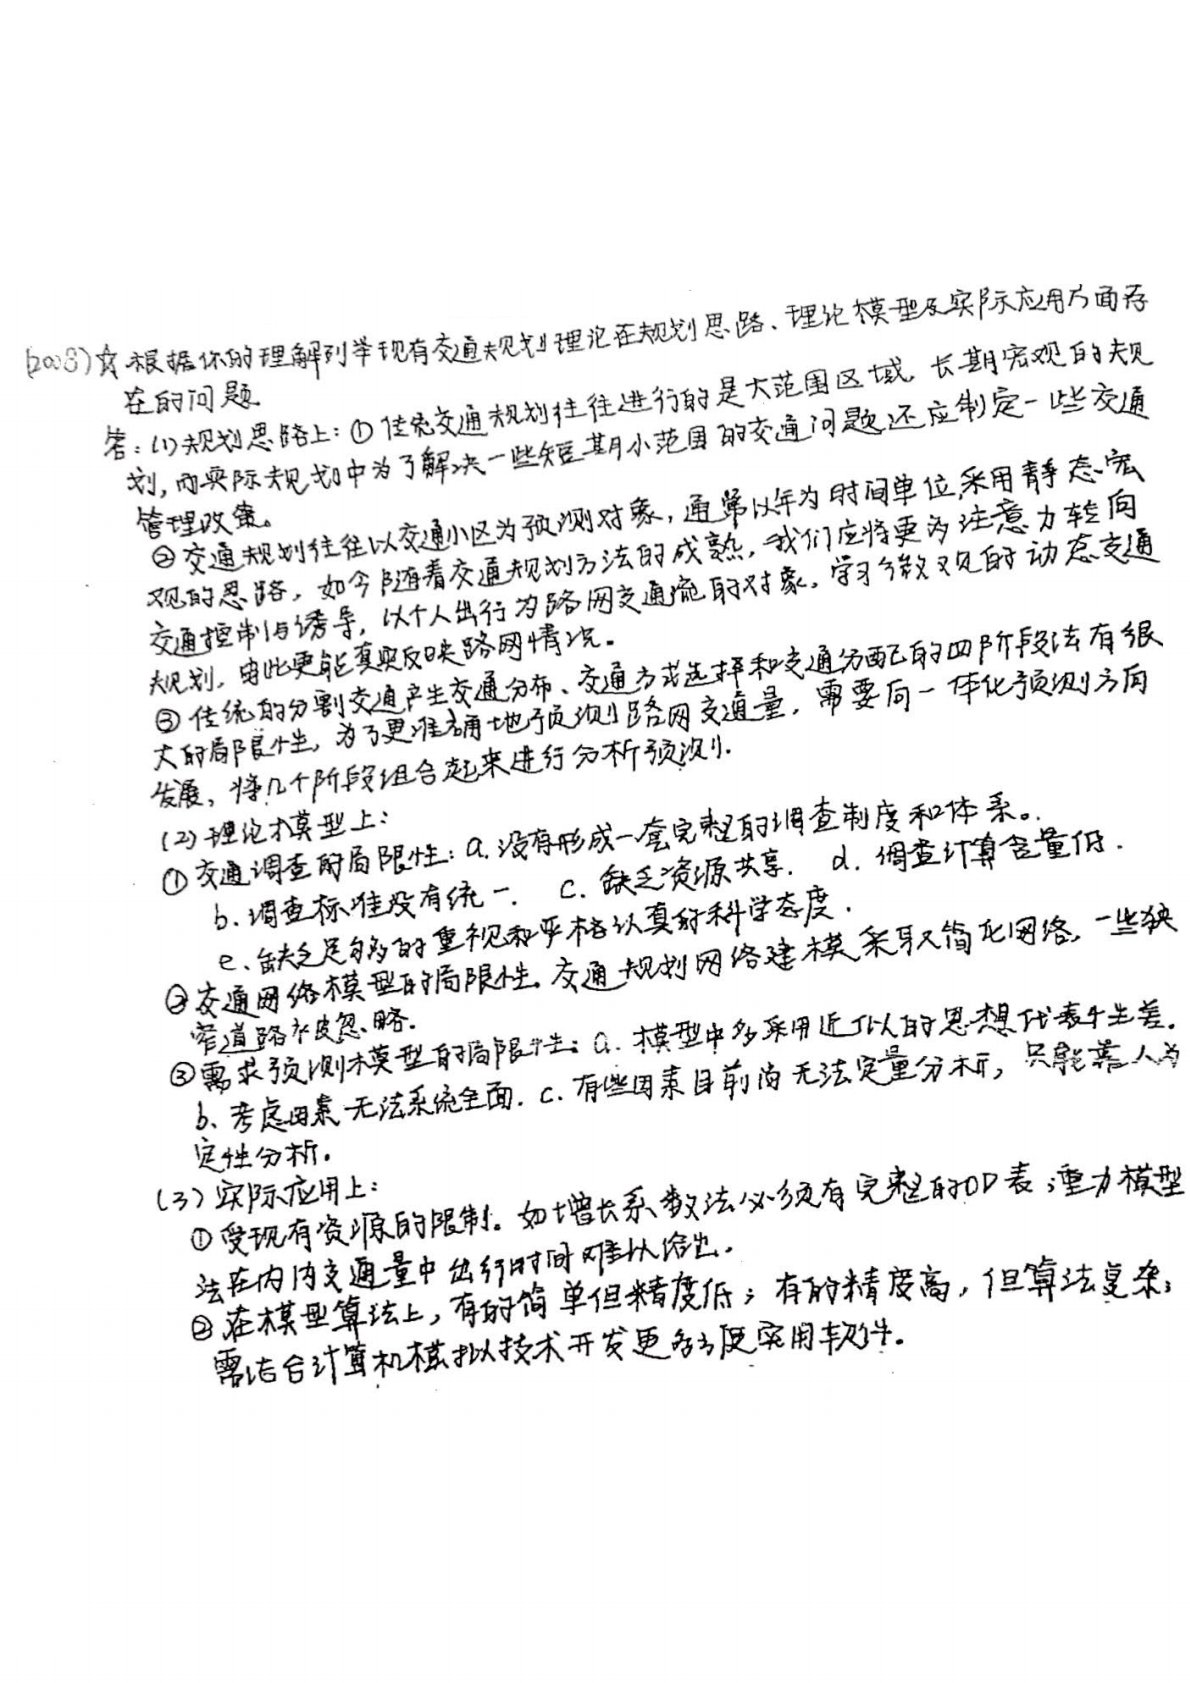 (2008)☆根据你的理解列举现有交通规划理论在规划思路、理论模型及实际应用方面存
在的问题
答:(1)规划思路上:①传统交通规划往往进行的是大范围区域、长期宏观的规
划,而实际规划中为了解决一些短期小范围的交通问题还应制定一些交通
管理政策。
②交通规划往往以交通小区为预测对象,通常以年为时间单位,采用静态宏
观的思路,如今随着交通规划方法的成熟,我们应将更多注意力转向
交通控制与诱导,以个人出行为路网交通流的对象,学习微观的动态交通
规划,由此更能真实反映路网情况。
③传统的分割交通产生交通分布、交通方式选择和交通分配的四阶段法有很
大的局限性,为了更准确地预测路网交通量,需要向一体化预测方向
发展,将几个阶段组合起来进行分析预测.
(2)理论模型上:
①交通调查的局限性:a.没有形成一套完整的调查制度和体系。
b.调查标准没有统一. c.缺乏资源共享. d.调查计算含量低.
e.缺乏足够的重视和严格认真的科学态度.
②交通网络模型的局限性.交通规划网络建模采取简化网络,一些狭
窄道路被忽略.
③需求预测模型的局限性:a.模型中多采用近似的思想代表生差.
b、考虑因素无法系统全面. c.有些因素目前尚无法定量分析,只能靠人为
定性分析。
(3)实际应用上:
①受现有资源的限制.如增长系数法必须有完整的OD表;重力模型
法在内内交通量中出行时间难以给出.
②在模型算法上,有的简单但精度低;有的精度高,但算法复杂;
需结合计算机模拟技术开发更多方便实用软件。